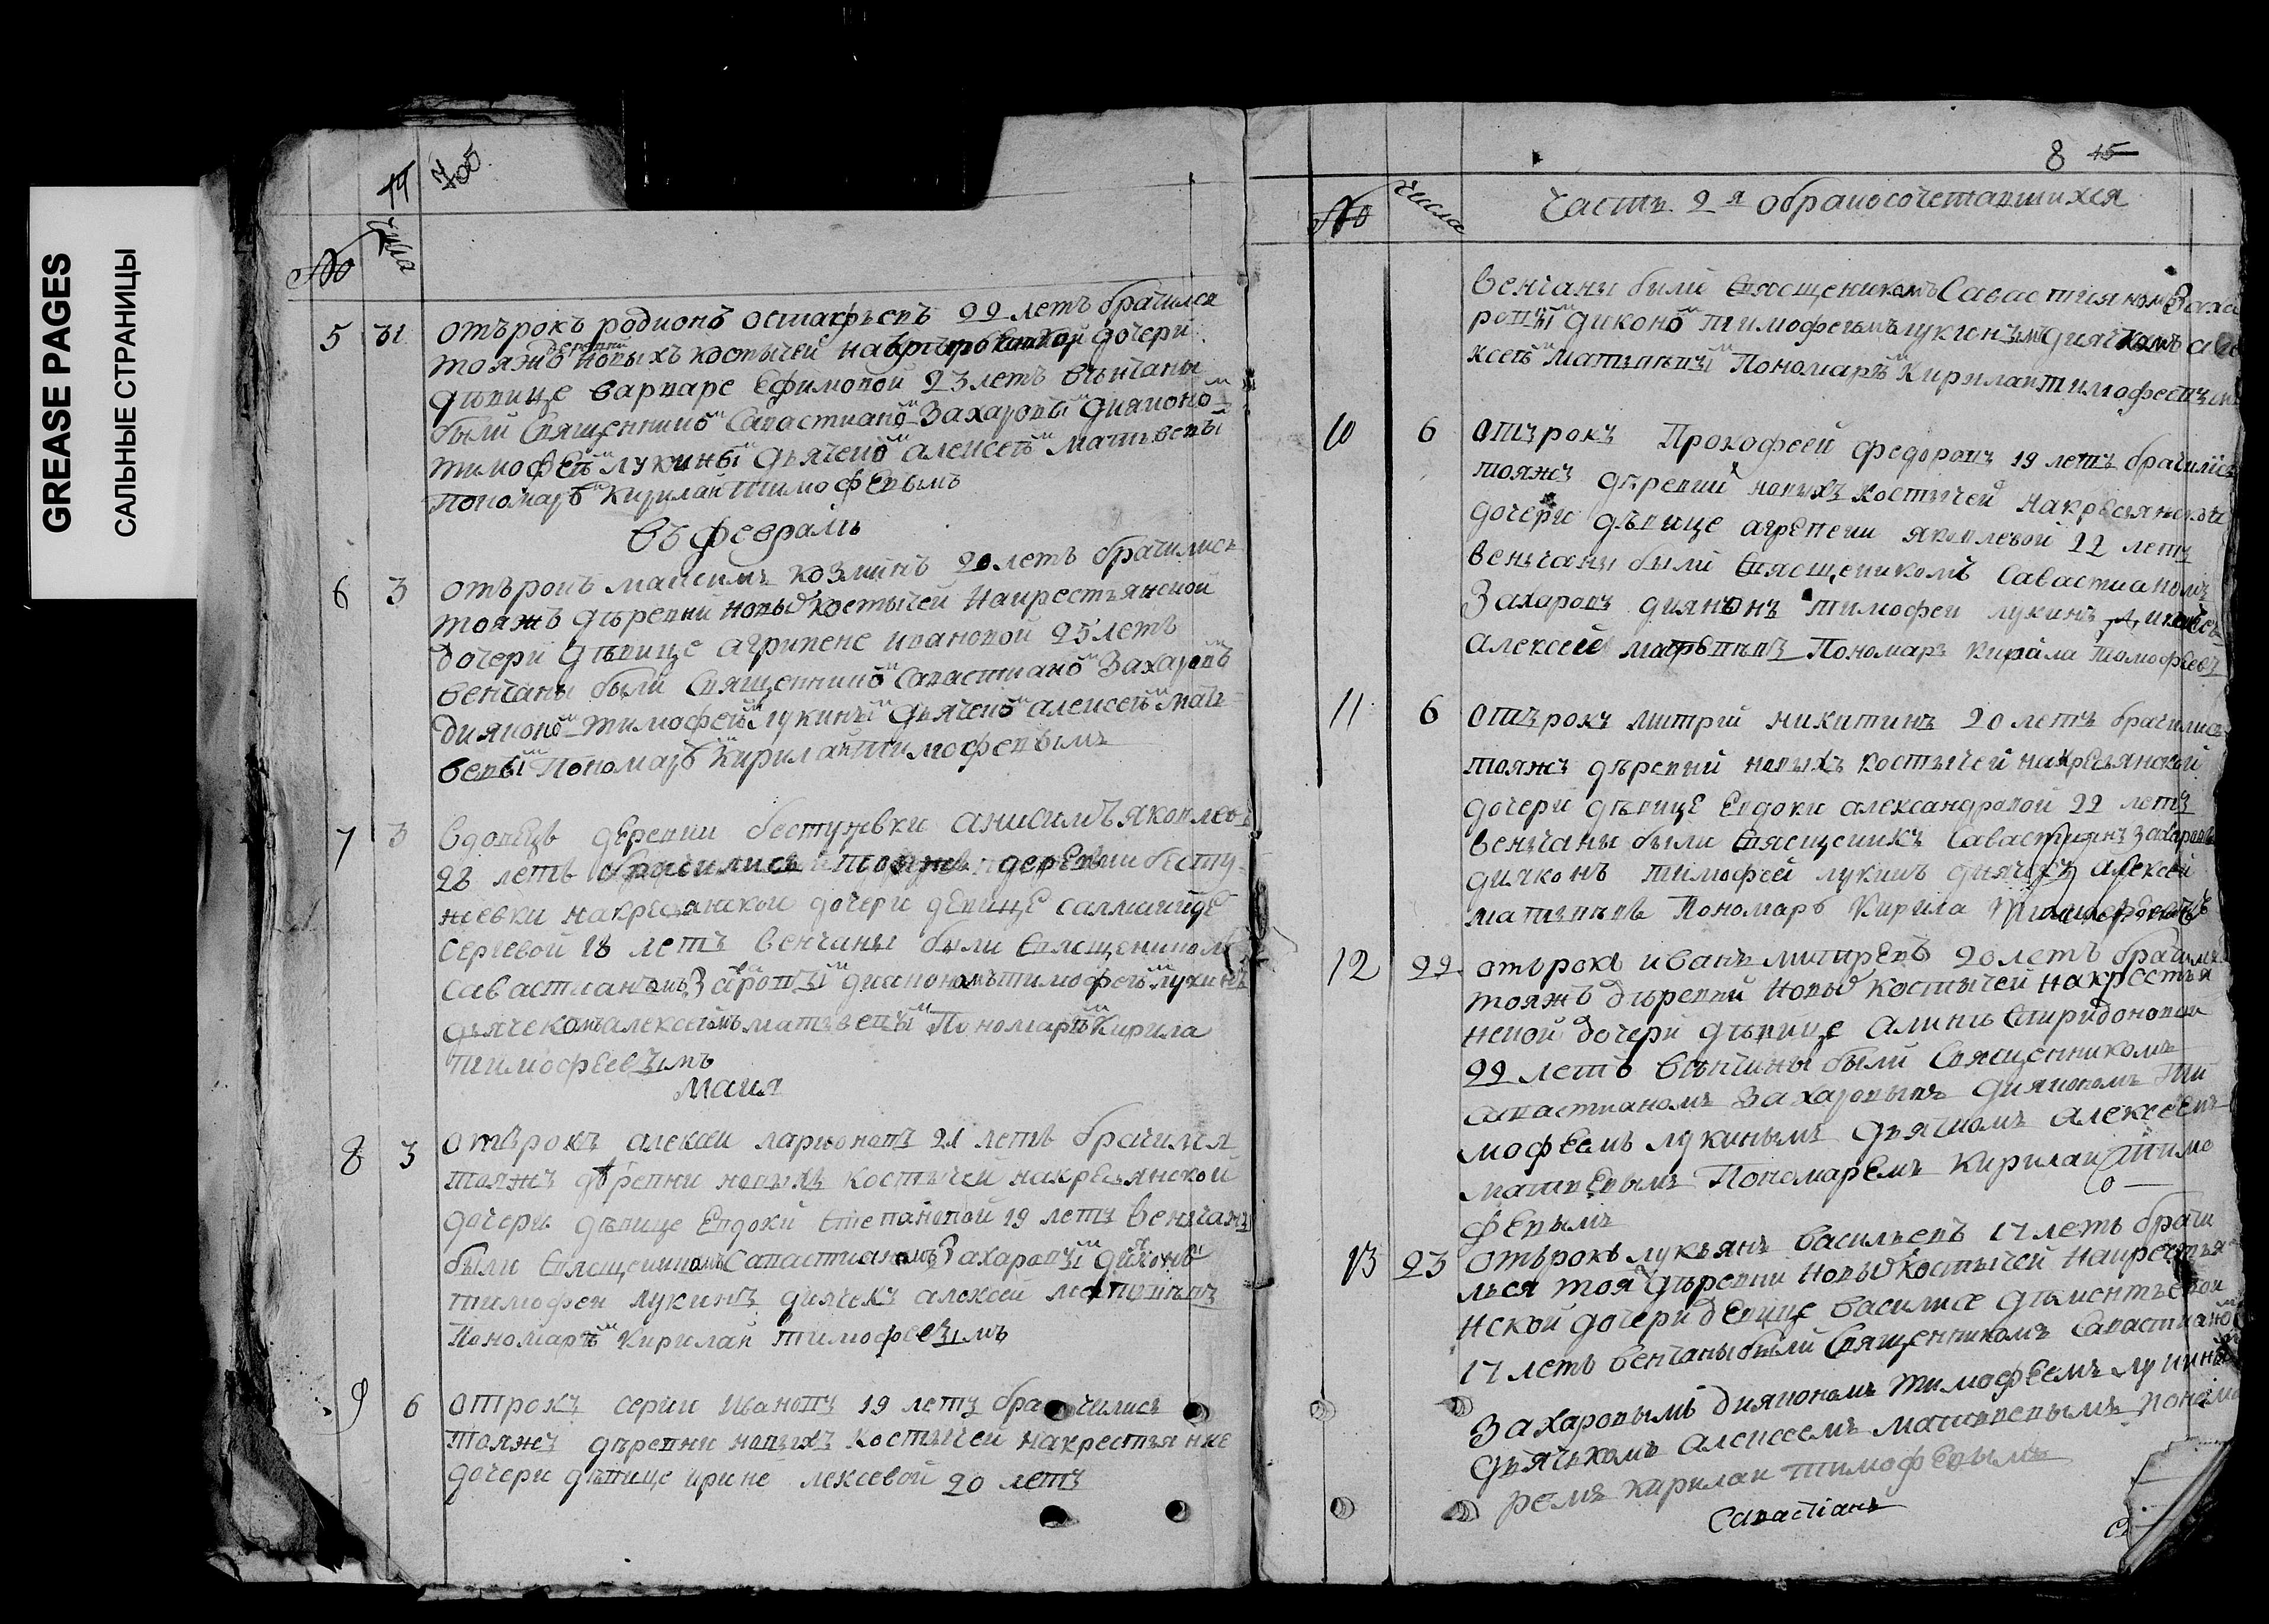 GREASE PAGES
САЛЬНЫЕ СТРАНИЦЫ
705
№ числа
5 31 отърокъ родионъ остафьевъ 22 летъ брачился
тояжъ деревни новыхъ костычей дочери
девице варваре Ефимовой 23 летъ венчаны
были Священникомъ Савастианомъ Захаровымъ диякономъ
тимофеемъ лукинымъ дьячекомъ алексеемъ матвеевымъ
Пономаремъ Кирилай тимофЕвымъ
въ февралъ
6 3 отърокъ максимъ козминъ 20 летъ брачились
тояжъ деревни новых костычей накрестьянской
дочери девице агрипене ивановой 25 летъ
венчаны были Священникомъ Савастианомъ Захаровъ
диякономъ тимофеемъ лукинымъ дьячекомъ алексеемъ мать
вевымъ Пономаремъ Кирилай тимофевымъ
7 3 вдовецъ деревни бестужевки анисимъ яковлевъ
28 летъ брачились тояжъ деревни бесту
жевки накресянской дочери девице
сергевой 18 летъ венчаны были Свясщеникомъ
савастианомъ Захаровымъ диякономъ тимофеемъ лукинъ
дьячекомъ алексеемъ матьвевымъ Пономаремъ Кирила
тимофеевымъ
Маия
8 3 отърокъ алексеи ларионовъ 21 летъ брачился
тояжъ деревни новыхъ костычей накресянской
дочери девице Евдоки Степановой 19 летъ венчаны
были Свясщеникомъ Савастианомъ Захаровымъ дияконъ
тимофеи лукинъ диячекъ алексей матвевъ
Пономаремъ Кирилай тимофеевымъ
9 6 отрокъ серги Ивановъ 19 летъ брачились
тояжъ деревни новыхъ костычей накрестьянке
дочери девице ирине лексевой 20 летъ
8 15
№ числа Часть 2я обраносочетавшихся
венчаны были Свясщеникомъ Савастияномъ Заха
ровымъ диякономъ тимофеемъ лукинымъ диячкомъ але
ксеемъ матьвевымъ Пономаремъ Кирилай тимофеевымъ
10 6 отърокъ Прокофеей федоровъ 19 летъ брачились
тояжъ деревний новыхъ костычей накресянской
дочери девице агрепени яковлевой 22 летъ
венчаны были Свясщеникомъ Савастианомъ
Захаровъ дияконъ тимофеи лукинъ
алексей матвевъ Пономаръ Кирала Тимофеевъ
11 6 отърокъ митрий никитинъ 20 летъ брачились
тояжъ деревний новыхъ костычей накресянской
дочери девице Евдоки александровой 22 летъ
венчаны были Свясщеникъ Савастиянъ Захаровъ
дияконъ тимофей лукинъ диячекъ алексей
матьвевъ Пономаръ Кирила Тимофеевъ
12 22 отърокъ иванъ митревъ 20 летъ брачился
тояжъ деревни Новых костычей накрестья
нской дочери девице Алинь Спиридоновой
22 летъ венчины были Священникомъ
савастианомъ Захаровымъ дияконом Ти
мофеемъ лукинымъ дьячкомъ алексеемъ
матвевымъ Пономаремъ Кирилаи тимо
фЕвымъ
13 23 отърокъ лукьянъ васильевъ 17 летъ брачи
лься тоя деревни Новых костычей накрестья
нской дочери дЕвице василисе деменьтьевой
17 летъ венчаны были Священникомъ Савастианомъ
Захаровымъ дияконом тимофеемъ лукинымъ
дьячькомъ алексеемъ матвевымъ поном
ремъ кирилаи тимофЕвымъ
Савастіанъ